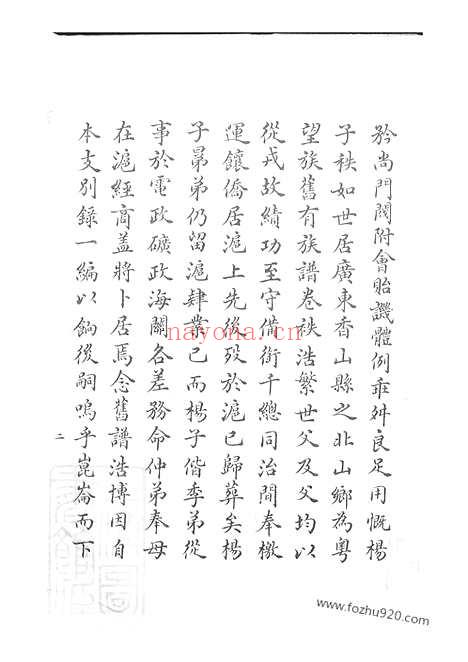 矜尚門閥附會貽譏體例乖舛良足用慨楊
子秩如世居廣東香山縣之北山鄉為粵
望族舊有族譜卷袟浩繁世父及父均以
從戎故績功至守備銜千總同治間奉檄
運饟僑居滬上先後歿於滬已歸葬矣楊
子晜弟仍留滬肄業已而楊子偕季弟從
事於電政礦政海關各差務命仲弟奉母
在滬經商蓋將卜居焉念舊譜浩博因自
本支別錄一編以餉後嗣嗚乎崑崙而下
二
nayona.cn
www.fozhu920.com